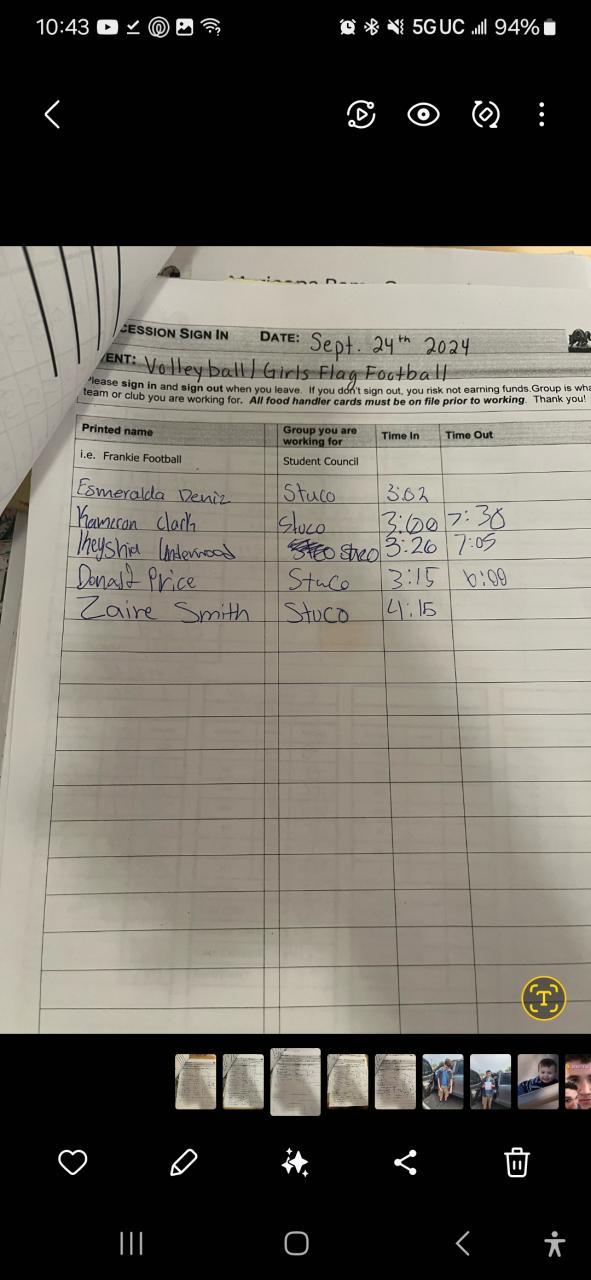 10:43 5GUC 94%
CESSION SIGN IN DATE: Sept. 24th 2024
ENT: Volleyball/Girls Flag Football
Please sign in and sign out when you leave. If you don't sign out, you risk not earning funds.Group is wha
team or club you are working for. All food handler cards must be on file prior to working. Thank you!
Printed name Group you are working for Time In Time Out
i.e. Frankie Football Student Council
Esmeralda Deniz Stuco 3:02
Kameron Clark Stuco 3:00 7:30
Underwood 3:26 7:05
Donald Price Stuco 3:15 6:00
Zaire Smith Stuco 4:15
T